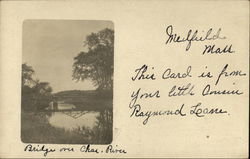 Medfield
Mass
This Card is from
Your little Cousin
Raymond Lane.
Bridge over Chas. River